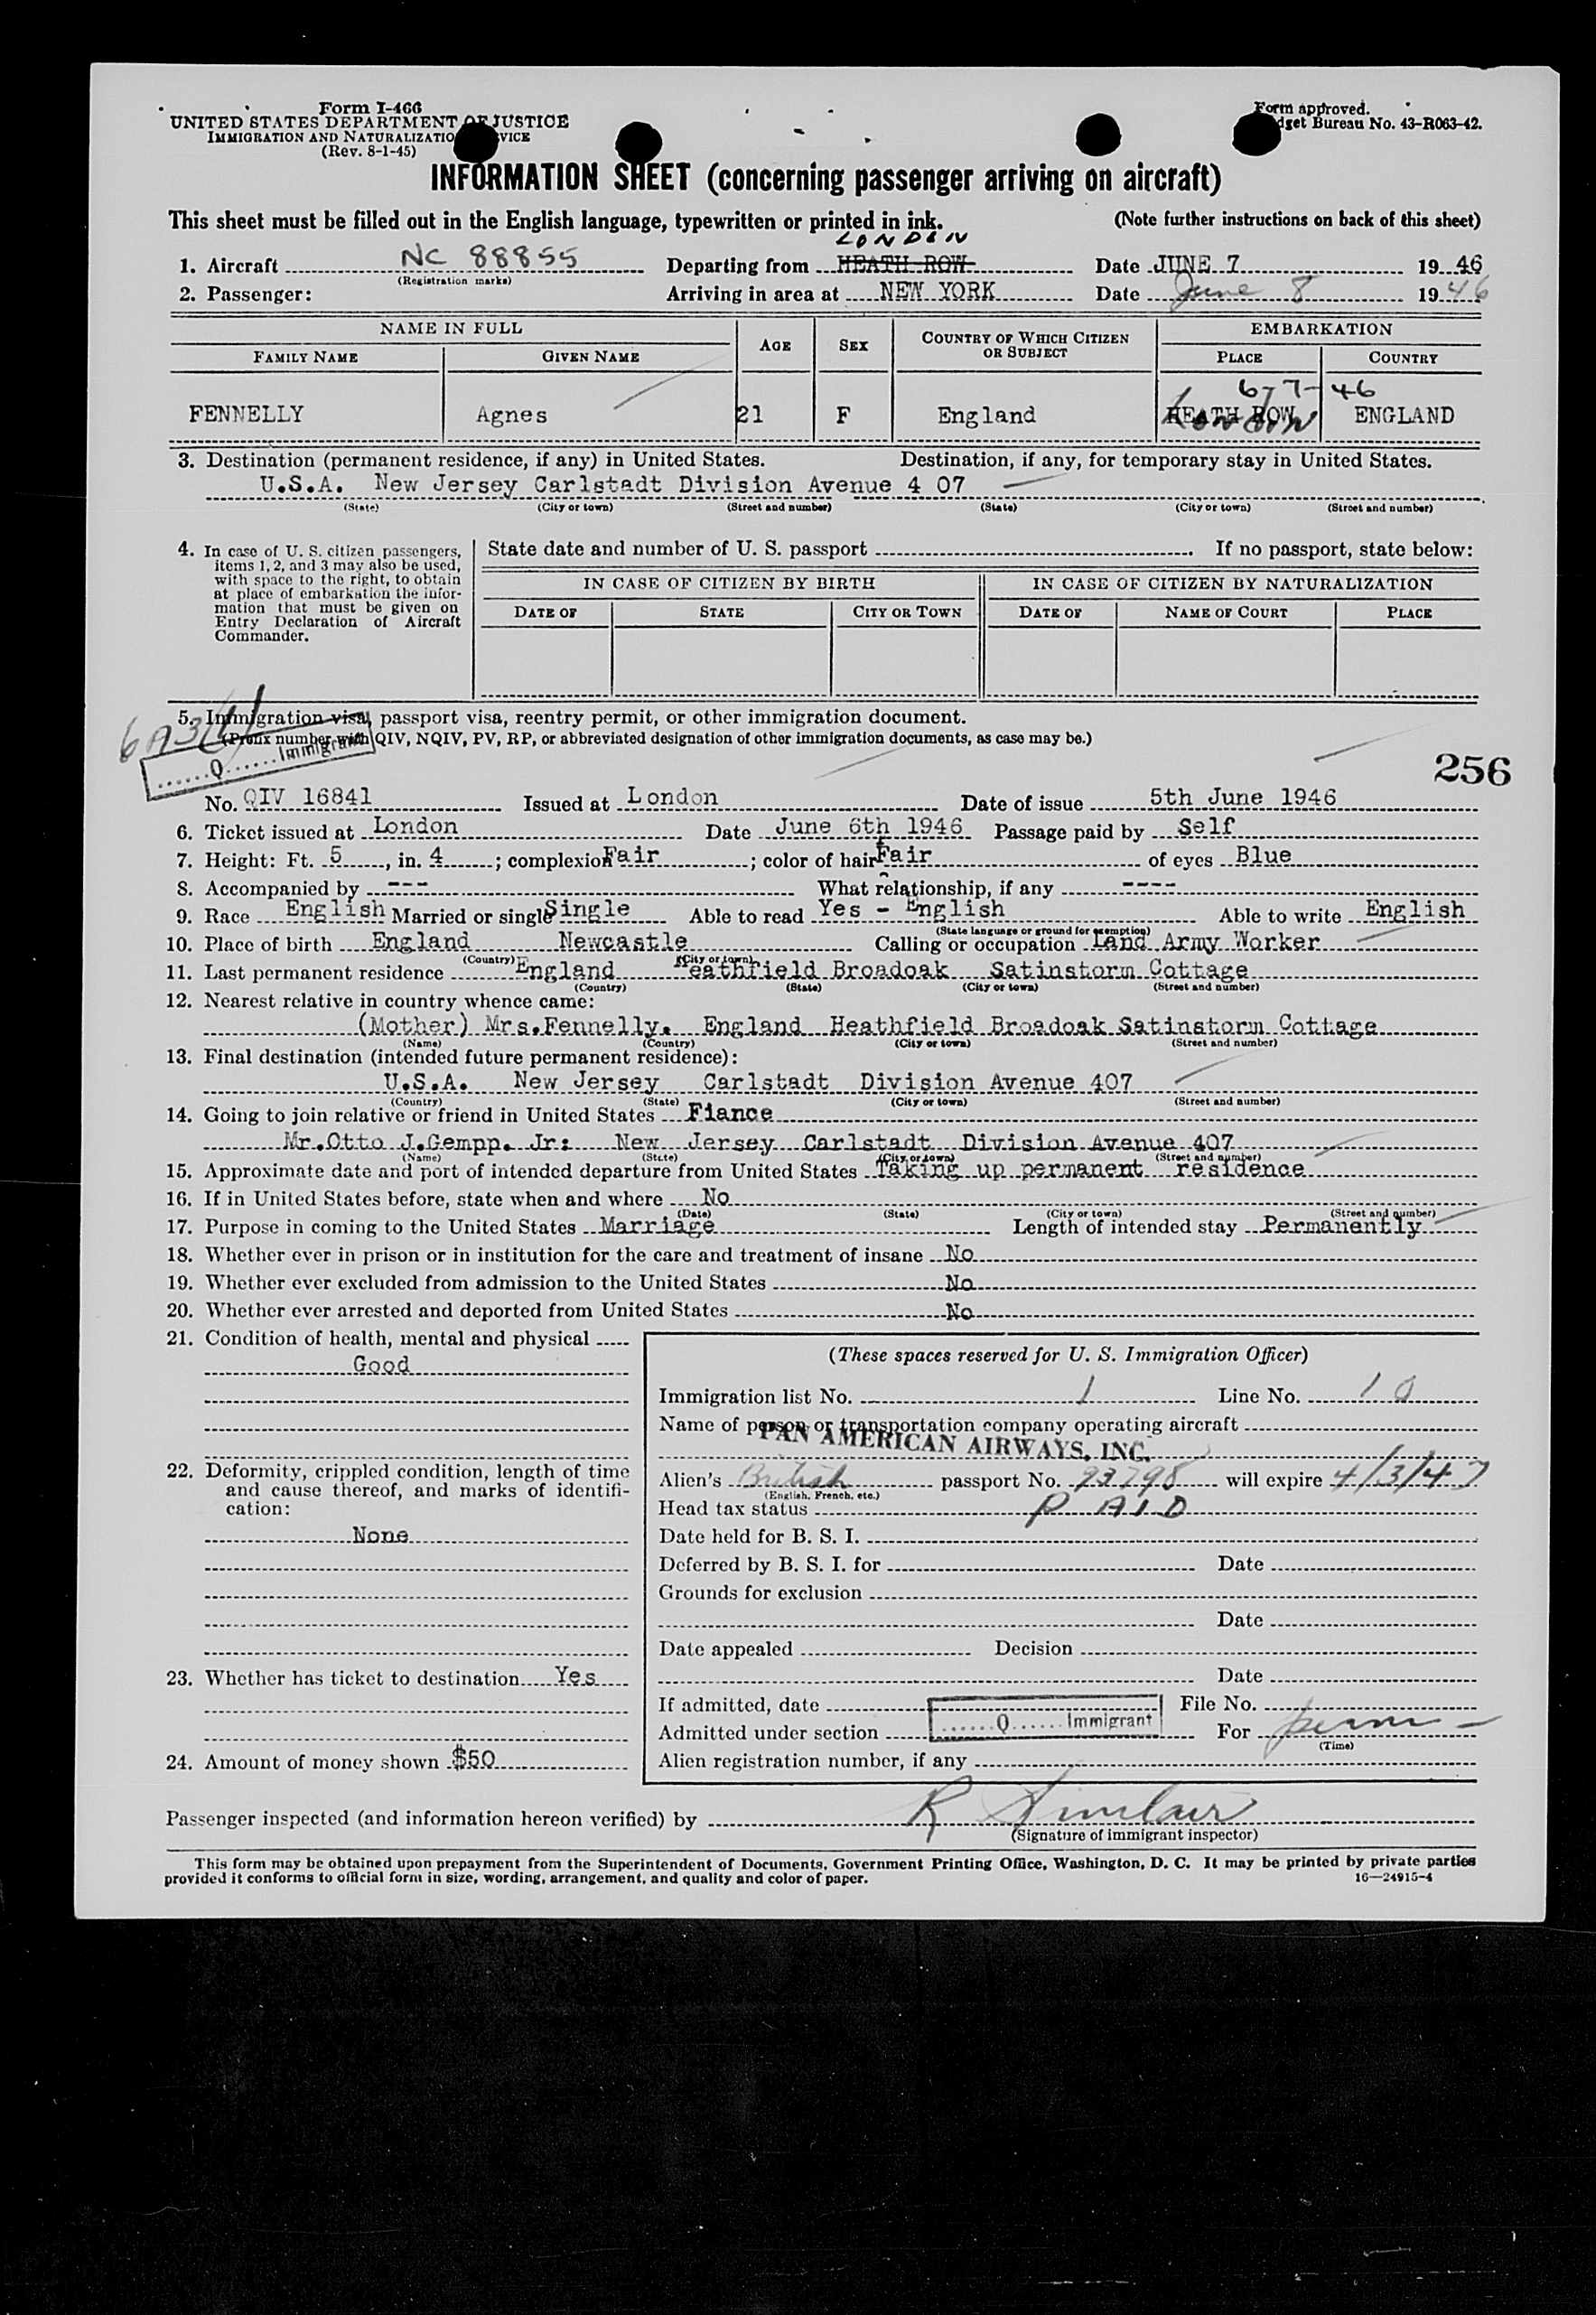 Form I-466
UNITED STATES DEPARTMENT OF JUSTICE
IMMIGRATION AND NATURALIZATION SERVICE
(Rev. 8-1-45)
Form approved.
Budget Bureau No. 43-R063-42.
INFORMATION SHEET (concerning passenger arriving on aircraft)
This sheet must be filled out in the English language, typewritten or printed in ink. (Note further instructions on back of this sheet)
LONDON
1. Aircraft NC 88855 Departing from HEATH ROW Date JUNE 7 1946
(Registration marks)
2. Passenger: Arriving in area at NEW YORK Date June 8 1946
NAME IN FULL AGE SEX COUNTRY OF WHICH CITIZEN OR SUBJECT EMBARKATION
FAMILY NAME GIVEN NAME PLACE COUNTRY
6-7-46
FENNELLY Agnes 21 F England HEATH ROW London ENGLAND
3. Destination (permanent residence, if any) in United States. Destination, if any, for temporary stay in United States.
U.S.A. New Jersey Carlstadt Division Avenue 4 07
(State) (City or town) (Street and number) (State) (City or town) (Street and number)
4. In case of U. S. citizen passengers,
items 1, 2, and 3 may also be used,
with space to the right, to obtain
at place of embarkation the infor-
mation that must be given on
Entry Declaration of Aircraft
Commander.
State date and number of U. S. passport If no passport, state below:
IN CASE OF CITIZEN BY BIRTH IN CASE OF CITIZEN BY NATURALIZATION
DATE OF STATE CITY OR TOWN DATE OF NAME OF COURT PLACE
5. Immigration visa, passport visa, reentry permit, or other immigration document.
(Prefix number with QIV, NQIV, PV, RP, or abbreviated designation of other immigration documents, as case may be.)
Q Immigrant
256
No. QIV 16841 Issued at London Date of issue 5th June 1946
6. Ticket issued at London Date June 6th 1946 Passage paid by Self
7. Height: Ft. 5, in. 4; complexion Fair; color of hair Fair of eyes Blue
8. Accompanied by --- What relationship, if any ----
9. Race English Married or single Single Able to read Yes - English Able to write English
(State language or ground for exemption)
10. Place of birth England Newcastle Calling or occupation Land Army Worker
(Country) (City or town)
11. Last permanent residence England Heathfield Broadoak Satinstorm Cottage
(Country) (State) (City or town) (Street and number)
12. Nearest relative in country whence came:
(Mother) Mrs.Fennelly. England Heathfield Broadoak Satinstorm Cottage
(Name) (Country) (City or town) (Street and number)
13. Final destination (intended future permanent residence):
U.S.A. New Jersey Carlstadt Division Avenue 407
(Country) (State) (City or town) (Street and number)
14. Going to join relative or friend in United States Fiance
Mr.Otto J.Gempp. Jr: New Jersey Carlstadt Division Avenue 407
(Name) (State) (City or town) (Street and number)
15. Approximate date and port of intended departure from United States Taking up permanent residence
16. If in United States before, state when and where No
(Date) (State) (City or town) (Street and number)
17. Purpose in coming to the United States Marriage Length of intended stay Permanently
18. Whether ever in prison or in institution for the care and treatment of insane No
19. Whether ever excluded from admission to the United States No
20. Whether ever arrested and deported from United States No
21. Condition of health, mental and physical
Good
22. Deformity, crippled condition, length of time
and cause thereof, and marks of identifi-
cation:
None
23. Whether has ticket to destination Yes
24. Amount of money shown $50
(These spaces reserved for U. S. Immigration Officer)
Immigration list No. 1 Line No. 10
Name of person or transportation company operating aircraft
PAN AMERICAN AIRWAYS, INC.
Alien's British passport No. 93798 will expire 4/3/47
(English, French, etc.)
Head tax status PAID
Date held for B. S. I.
Deferred by B. S. I. for Date
Grounds for exclusion
Date
Date appealed Decision
Date
If admitted, date File No.
Admitted under section Q Immigrant For perm -
(Time)
Alien registration number, if any
Passenger inspected (and information hereon verified) by R Sinclair
(Signature of immigrant inspector)
This form may be obtained upon prepayment from the Superintendent of Documents, Government Printing Office, Washington, D. C. It may be printed by private parties
provided it conforms to official form in size, wording, arrangement, and quality and color of paper. 16—24915-4